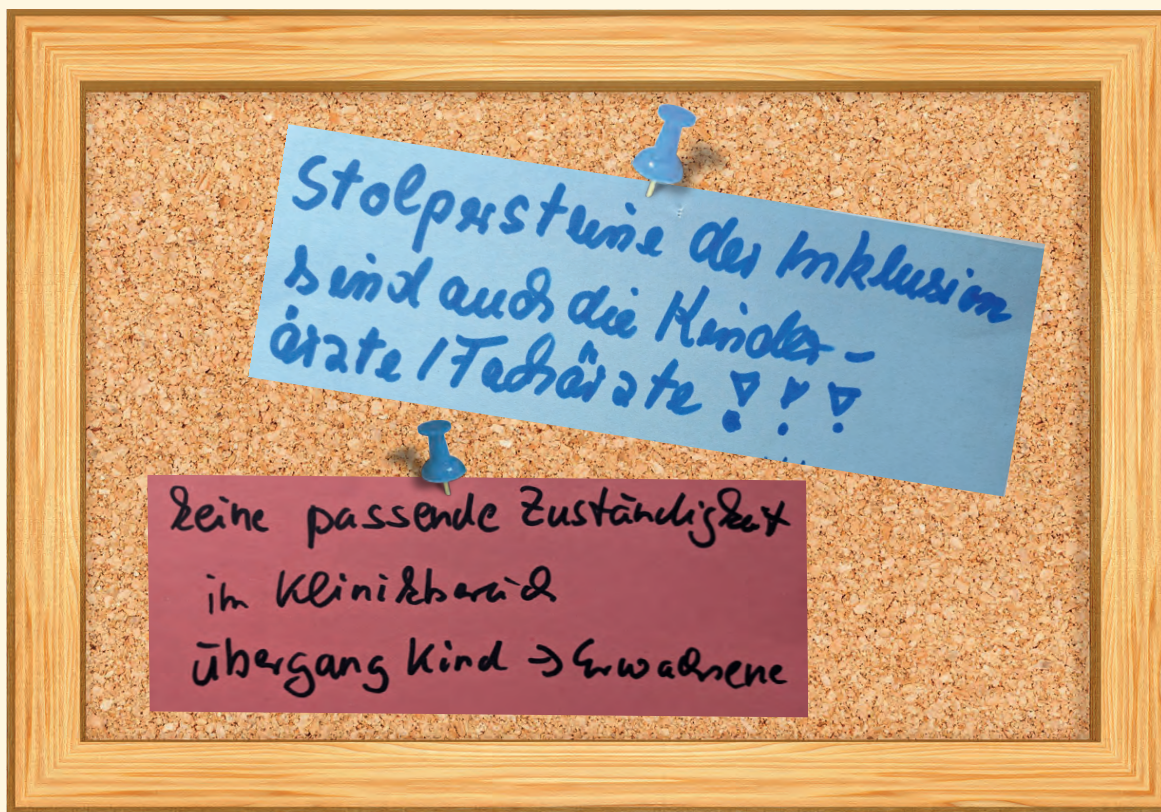 Stolpersteine der Inklusion
sind auch die Kinder-
ärzte / Fachärzte !!!
keine passende Zuständigkeit
im Klinikbereich
Übergang Kind → Erwachsene